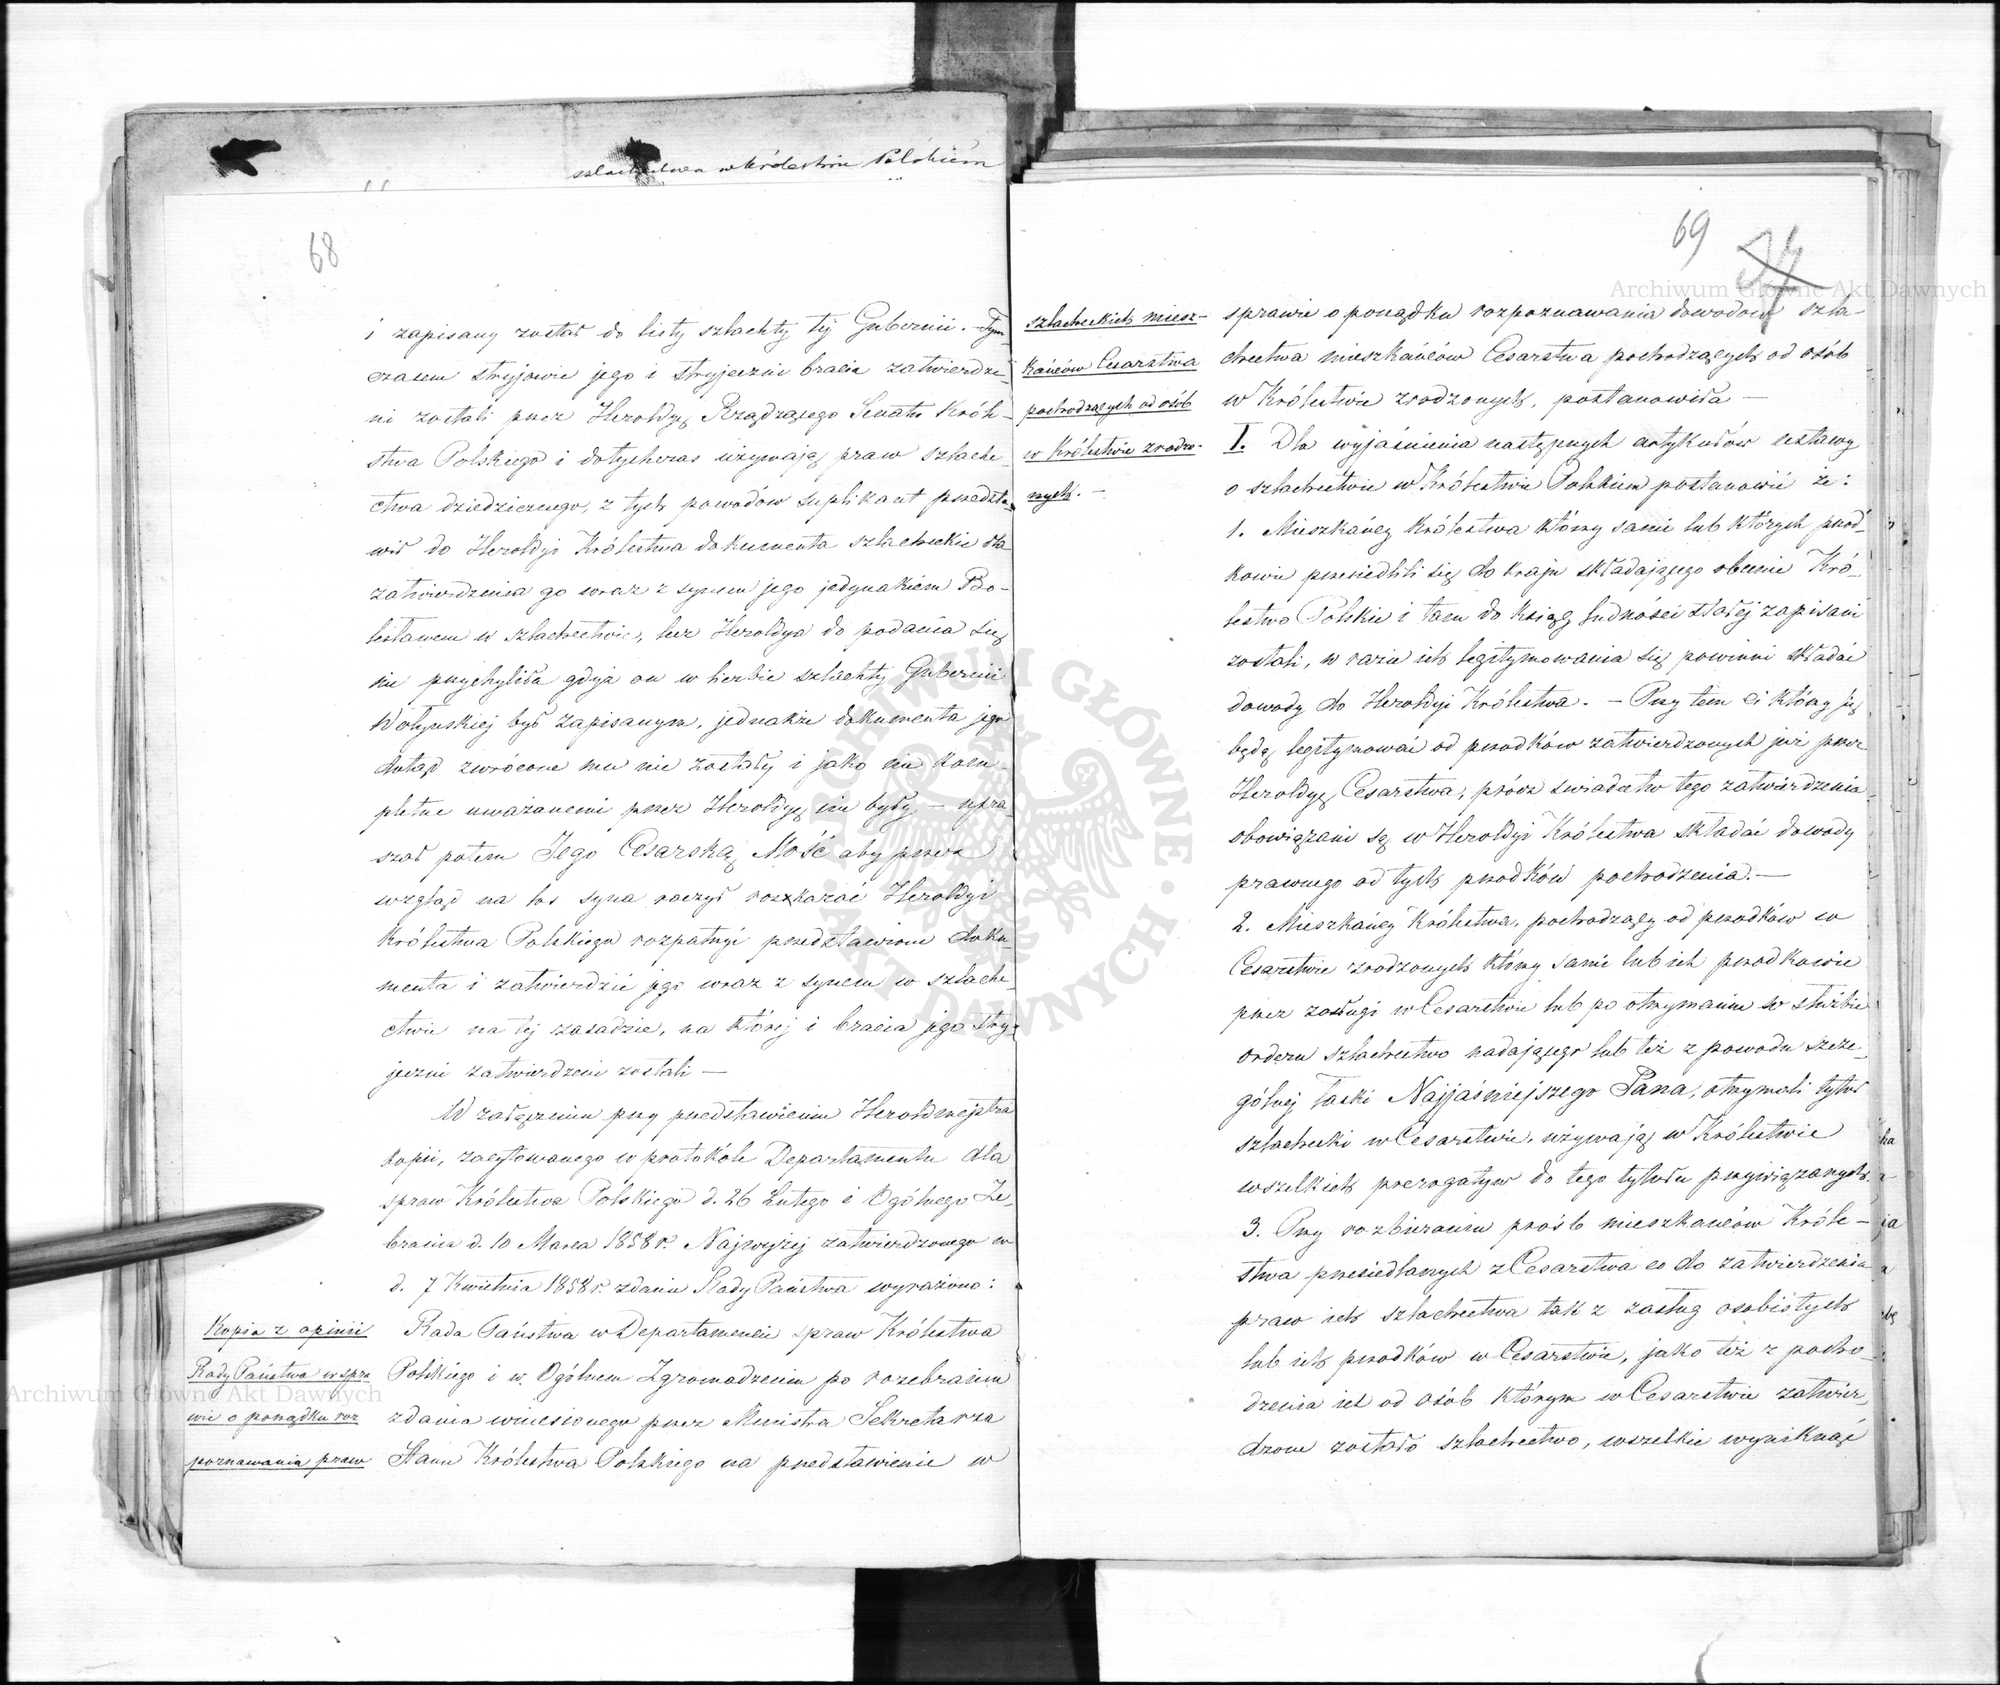 szlachectwa w Królestwie Polskiém
68
i zapisany został do listy szlachty téj Gubernii. Tym
czasem stryjowie jego i stryjeczni bracia zatwierdze-
ni zostali przez Heroldyę Rządzącego Senatu Króle-
stwa Polskiego i dotychczas używają praw szlache-
ctwa dziedzicznego, z tych powodów suplikant przedsta-
wił do Heroldyi Królestwa dokumenta szlacheckie dla
zatwierdzenia go wraz z synem jego jedynakiem Bo-
lesławem w szlachectwie, lecz Heroldya do podania się
nie przychyliła gdyż on w herbie szlachty Gubernii
Wołyńskiej był zapisanym, jednakże dokumenta jego
dotąd zwrócone mu nie zostały i jako nie kom-
pletne uważanemi przez Heroldyę nie były, — upra-
szał potem Jego Cesarską Mość aby przez
wzgląd na los syna raczył rozkazać Heroldyi
Królestwa Polskiego rozpatrzyć przedstawione doku-
menta i zatwierdzić jego wraz z synem w szlache-
ctwie na téj zasadzie, na któréj i bracia jego stry-
jeczni zatwierdzeni zostali —
W załączeniu przy przedstawieniu Heroldmejstra
kopii, zacytowanego w protokóle Departamentu dla
spraw Królestwa Polskiego d. 26 Lutego i Ogólnego Ze-
brania d. 10 Marca 1858 r. Najwyżéj zatwierdzonego w
d. 7 Kwietnia 1858 r. zdaniu Rady Państwa wyrażono:
Kopia z opinii
Rady Państwa w spra
wie o porządku roz
poznawania praw
Rada Państwa w Departamencie spraw Królestwa
Polskiego i w Ogólnem Zgromadzeniu po rozebraniu
zdania wniesionego przez Ministra Sekretarza
Stanu Królestwa Polskiego na przedstawienie w
69
szlacheckich miesz-
kańców Cesarstwa
pochodzących od osób
w Królestwie zrodzo-
nych. —
sprawie o porządku rozpoznawania dowodów szla-
chectwa mieszkańców Cesarstwa pochodzących od osób
w Królestwie zrodzonych, postanowiła —
I. Dla wyjaśnienia następnych artykułów ustawy
o szlachectwie w Królestwie Polskiem postanowić że:
1. Mieszkańcy Królestwa którzy sami lub których przod-
kowie przesiedlili się do kraju składającego obecnie Kró-
lestwo Polskie i tam do ksiąg ludności stałéj zapisani
zostali, w razie ich legitymowania się powinni składać
dowody do Heroldyi Królestwa. — Przy tem ci którzy się
będą legitymować od przodków zatwierdzonych już przez
Heroldyę Cesarstwa, prócz świadectw tego zatwierdzenia
obowiązani są w Heroldyi Królestwa składać dowody
prawnego od tych przodków pochodzenia. —
2. Mieszkańcy Królestwa, pochodzący od przodków w
Cesarstwie zrodzonych którzy sami lub ich przodkowie
przez zasługi w Cesarstwie lub po otrzymaniu w służbie
orderu szlachectwo nadającego lub też z powodu szcze-
gólnéj łaski Najjaśniejszego Pana, otrzymali tytuł
szlachecki w Cesarstwie, używają w Królestwie
wszelkich prerogatyw do tego tytułu przywiązanych.
3. Przy rozbieraniu próśb mieszkańców Króle-
stwa przesiedlanych z Cesarstwa co do zatwierdzenia
praw ich szlachectwa tak z zasług osobistych
lub ich przodków w Cesarstwie, jako też z pocho-
dzenia ich od osób którym w Cesarstwie zatwier-
dzone zostało szlachectwo, wszelkie wyniknąć
Archiwum Główne Akt Dawnych
Archiwum Główne Akt Dawnych
ARCHIWUM GŁÓWNE · AKT DAWNYCH ·